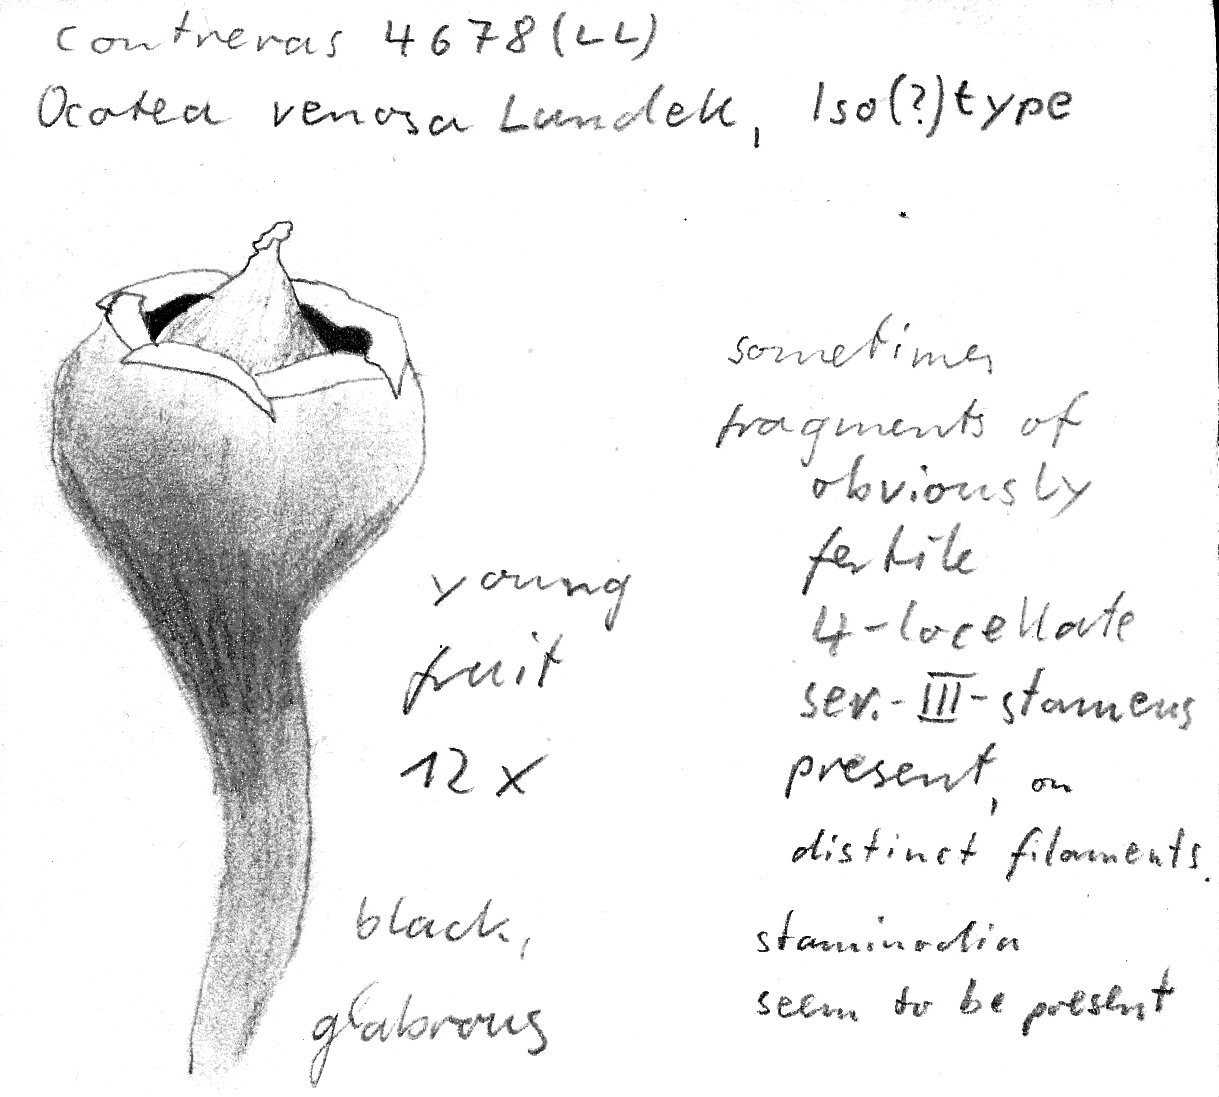 Contreras 4678 (LL)
Ocotea venosa Lundell, Iso(?)type
sometimes
fragments of
obviously
fertile
4-locellate
ser.-III-stamens
present, on
distinct filaments.
staminodia
seem to be present
young
fruit
12 x
black,
glabrous